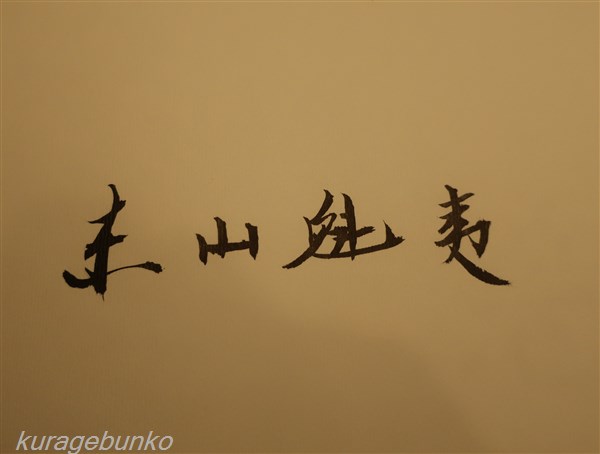 東山魁夷
kuragebunko